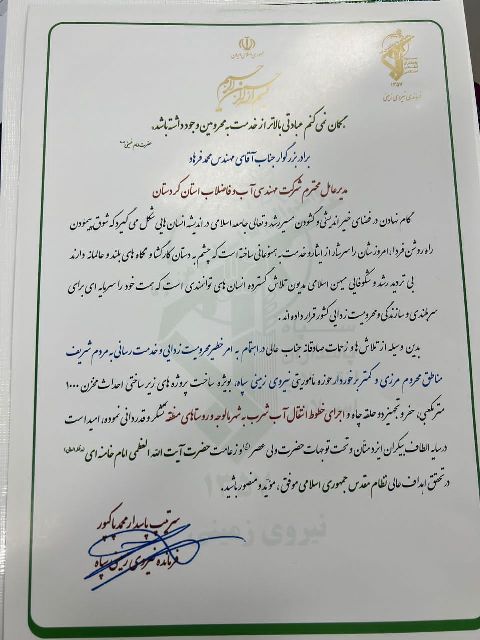 جمهوری اسلامی ایران
بسم الله الرحمن الرحیم
۱۳۵۷
فرماندهی نیروی زمینی
گمان نمی کنم عبادتی بالاتر از خدمت به محرومین وجود داشته باشد.
حضرت امام خمینی
برادر بزرگوار جناب آقای مهندس محمد فرهاد
مدیرعامل محترم شرکت مهندسی آب و فاضلاب استان کردستان
گام نهادن در فضای خیراندیشی و گشودن مسیر رشد و تعالی جامعه اسلامی در اندیشه انسان هایی شکل می گیرد که شوق پیمودن
راه روشن فردا، امروزشان را سرشار از ایثار و خدمت به همنوعانی ساخته است که چشم به دستان کارگشا و نگاه های بلند و عالمانه دارند
بی تردید رشد و شکوفایی میهن اسلامی مدیون تلاش گسترده انسان های توانمندی است که همت خود را سرمایه ای برای
سربلندی و سازندگی و محرومیت زدایی کشور قرار داده اند.
بدین وسیله از تلاش ها و زحمات صادقانه جناب عالی در اهتمام به امر خطیر محرومیت زدایی و خدمت رسانی به مردم شریف
مناطق محروم مرزی و کمتر برخوردار حوزه مأموریتی نیروی زمینی سپاه، بویژه ساخت پروژه های زیرساختی احداث مخزن ۱۰۰۰
مترمکعبی، حفر و تجهیز دو حلقه چاه و اجرای خطوط انتقال آب شرب به شهر بالوجه و روستاهای منطقه تشکر و قدردانی نموده، امید است
در سایه الطاف بیکران ایزد منان و تحت توجهات حضرت ولی عصر (عج) و زعامت حضرت آیت الله العظمی امام خامنه ای
در تحقق اهداف عالی نظام مقدس جمهوری اسلامی موفق، مؤید و منصور باشید.
سرتیپ پاسدار محمد پاکپور
فرمانده نیروی زمینی سپاه
نیروی زمینی